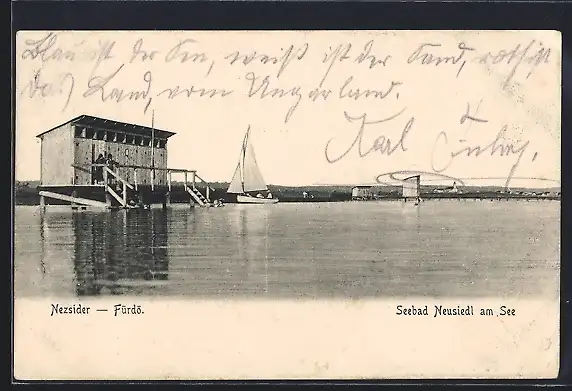 Blau ist der See, weiß ist der Sand, rot ist
das Land, vom Ungarland.
Karl
Nezsider — Fürdő.
Seebad Neusiedl am See